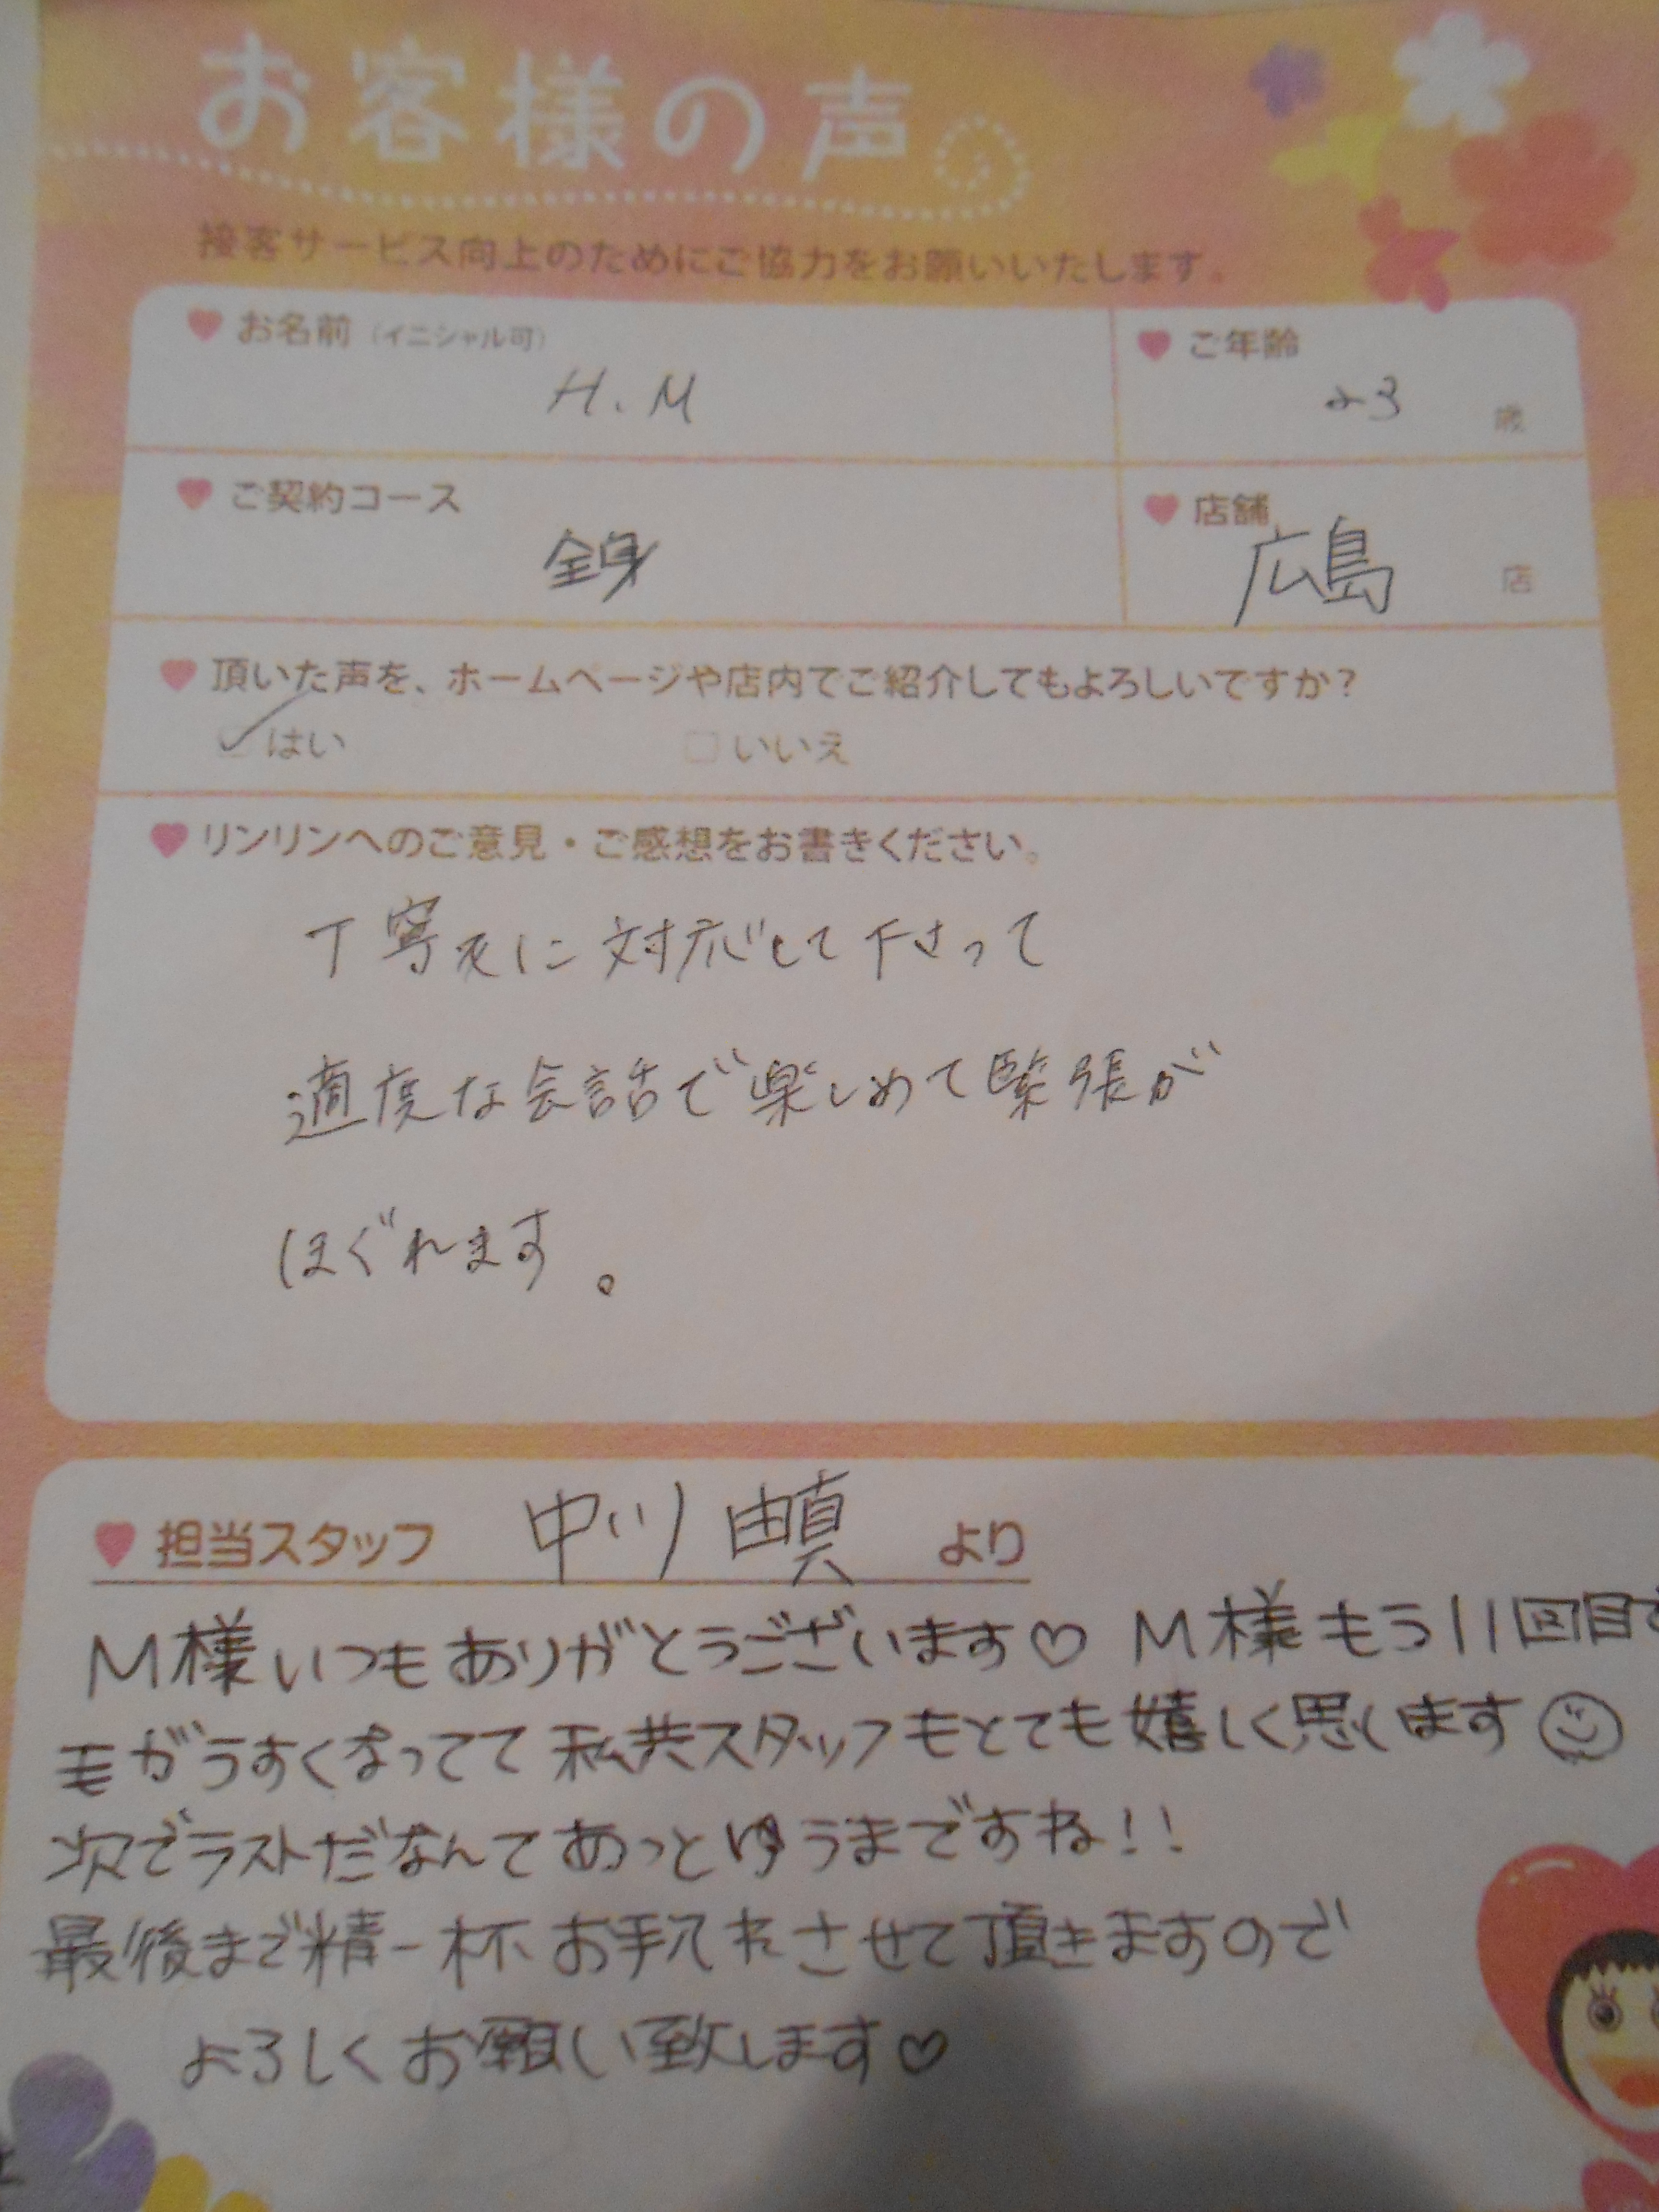 お客様の声
接客サービス向上のためにご協力をお願いいたします。
お名前（イニシャル可）
H.M
ご年齢
23 歳
ご契約コース
全身
店舗
広島 店
頂いた声を、ホームページや店内でご紹介してもよろしいですか？
はい いいえ
リンリンへのご意見・ご感想をお書きください。
丁寧に対応して下さって
適度な会話で楽しめて緊張が
ほぐれます。
担当スタッフ 中川 由真 より
M様いつもありがとうございます♡ M様もう11回目で
毛がうすくなってて私共スタッフもとても嬉しく思います
次でラストだなんてあっとゆうまですね!!
最後まで精一杯お手入れさせて頂きますので
よろしくお願い致します♡